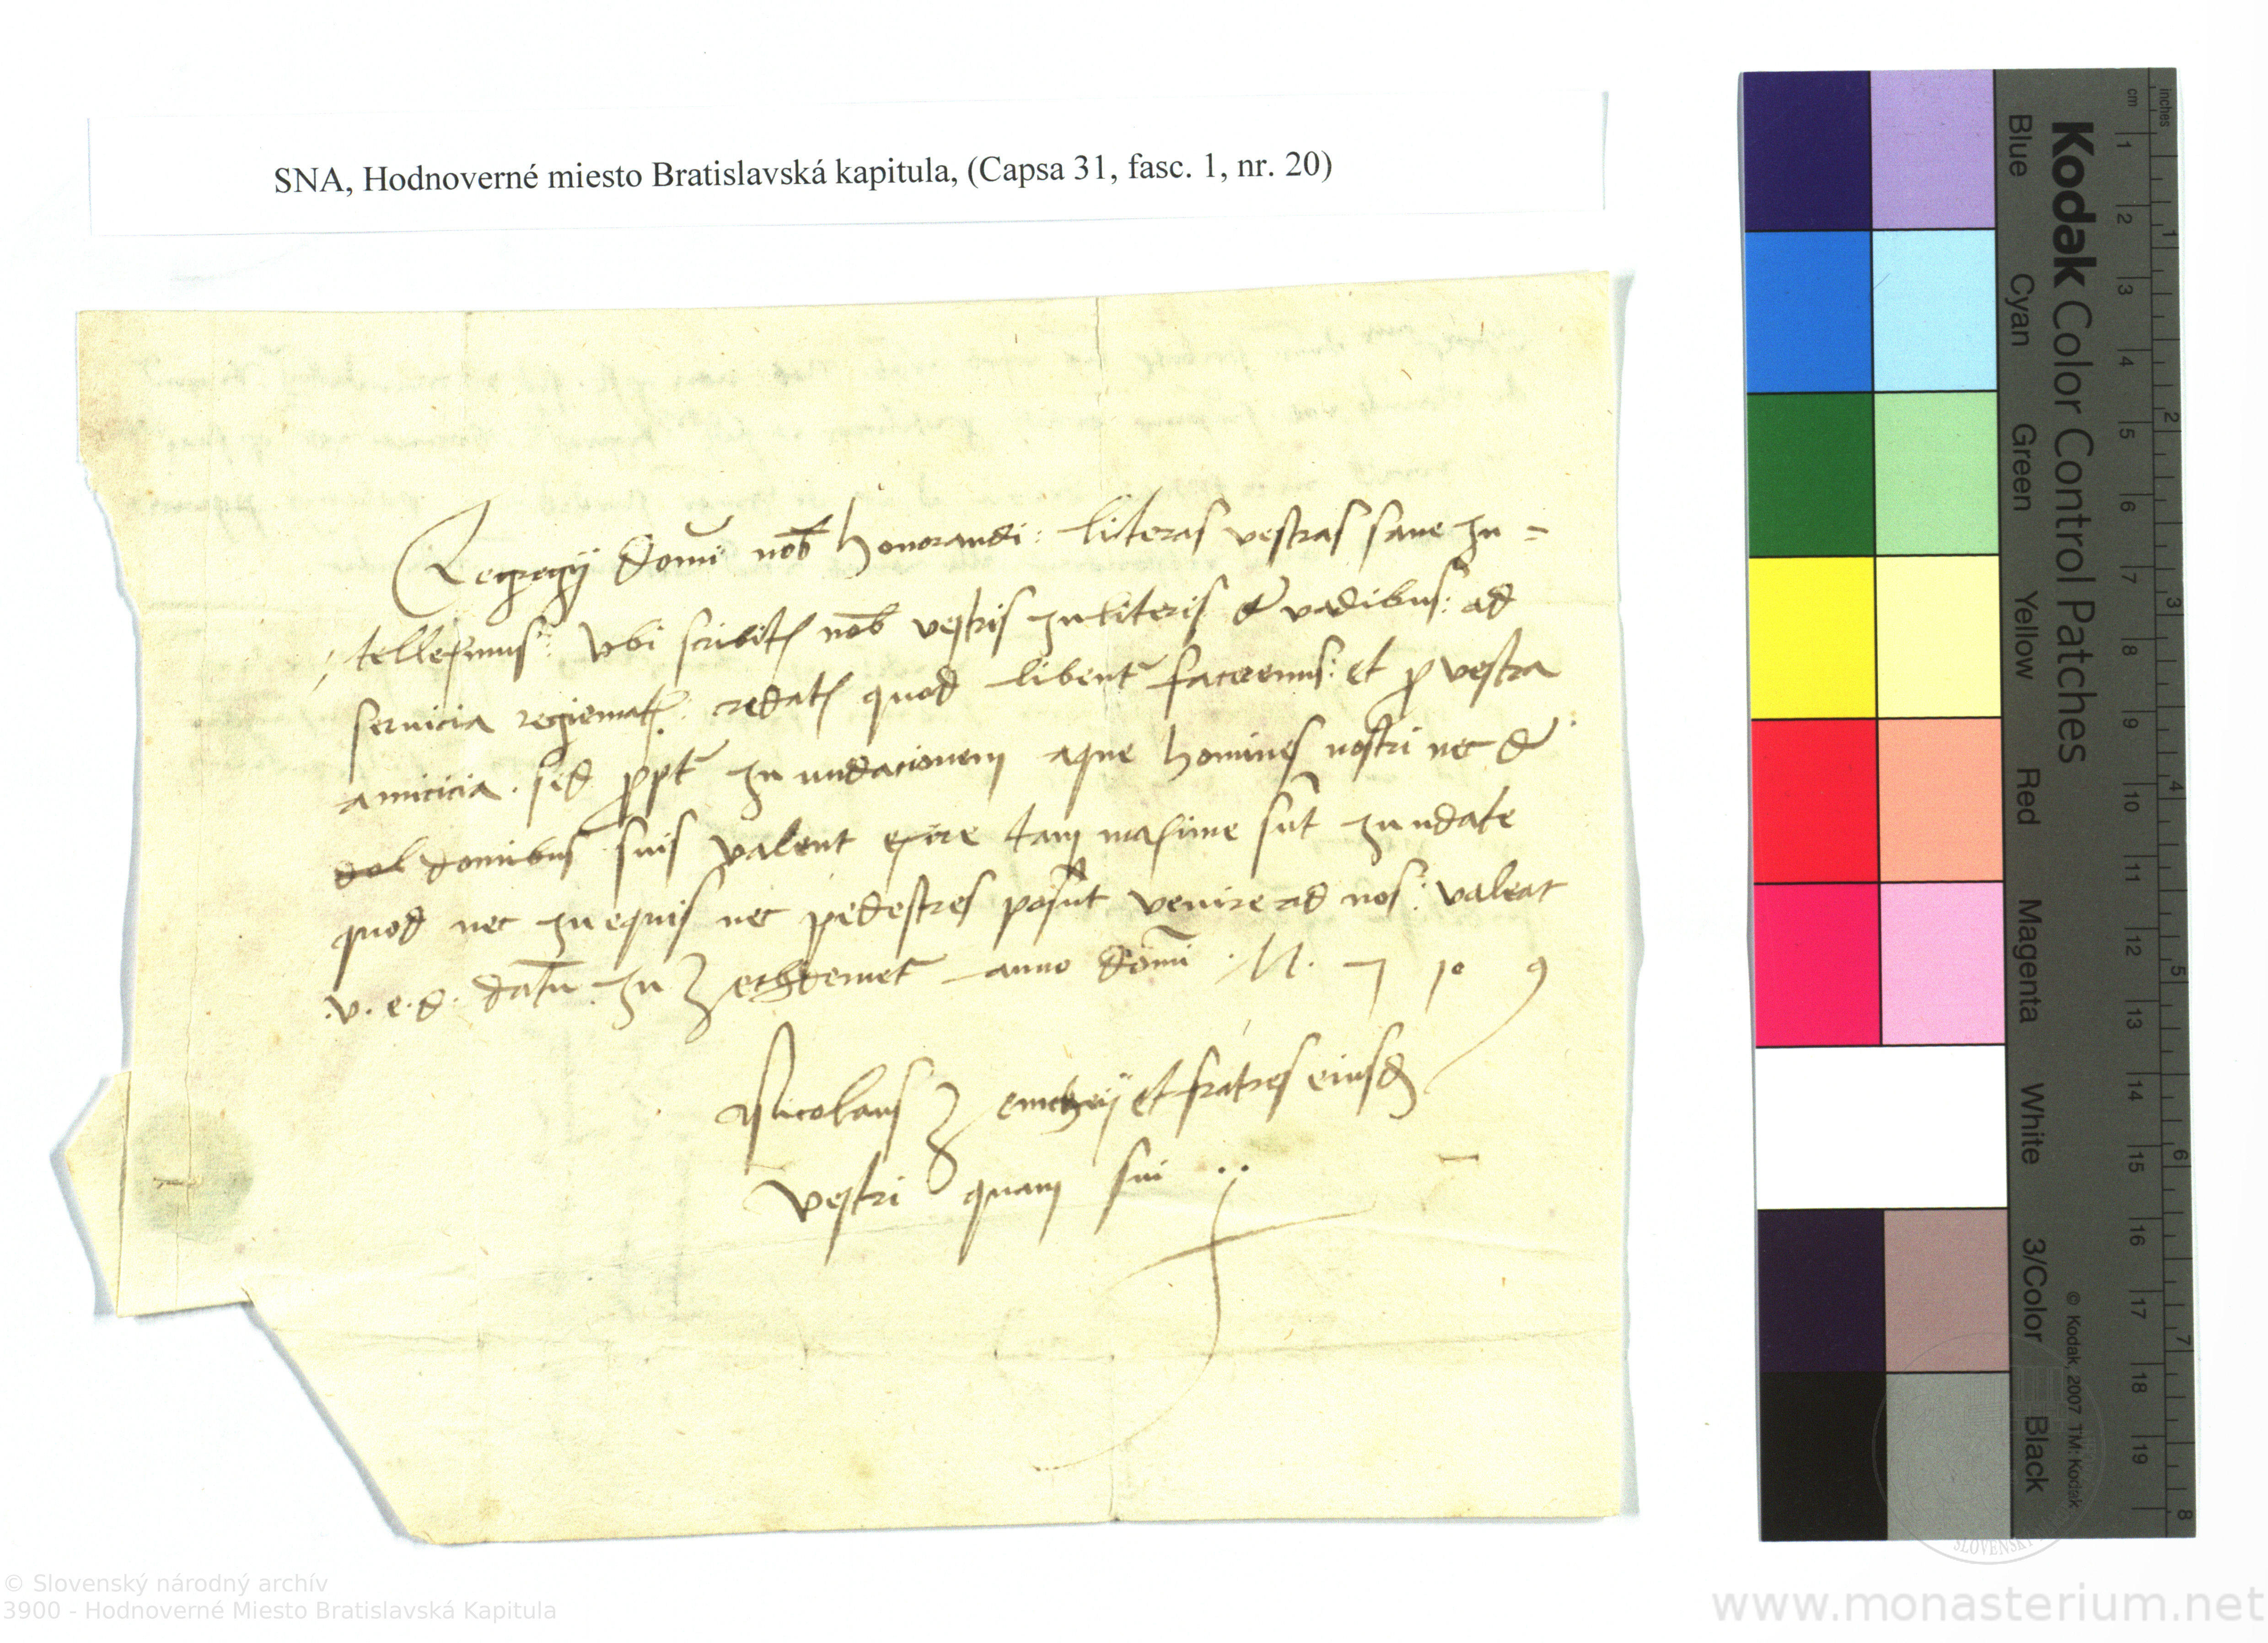 SNA, Hodnoverné miesto Bratislavská kapitula, (Capsa 31, fasc. 1, nr. 20)
Egregÿ domī nob honorandi: literas vestras sane in=
tellexmus: vbi scribitꝭ nob vestris in literis & vadibus: ad
seruicia regiematꝭ: redatꝭ quod libentꝰ faceremus: et ꝓ vestra
amicicia. sed ꝓptꝰ in undacionem aque homines nostri nec de
domibus suis valent exire tam maxime sūt inundate
quod nec in equis nec pedestres posūt venire ad nos: valeat
.v. e. d. datū in anno domī .M.
Nicolaus et fratres eiusd
vestri quam sui ..
Kodak Color Control Patches
Blue Cyan Green Yellow Red Magenta White 3/Color Black
© Kodak, 2007 TM: Kodak
inches 1 2 3 4 5 6 7 8
cm 1 2 3 4 5 6 7 8 9 10 11 12 13 14 15 16 17 18 19
© Slovenský národný archív
3900 - Hodnoverné Miesto Bratislavská Kapitula
www.monasterium.net